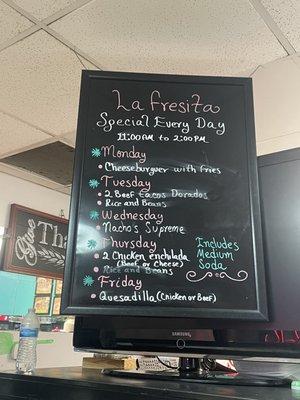 La Fresita
Special Every Day
11:00AM to 2:00PM
Monday
Cheeseburguer with fries
Tuesday
2 Beef Tacos Dorados
Rice and Beans
Wednesday
Nacho's Supreme
Thursday
2 Chicken enchilada
(Beef or Cheese)
Rice and Beans
Includes
Medium
Soda
Friday
Quesadilla (Chicken or Beef)
Give
Tha
SAMSUNG